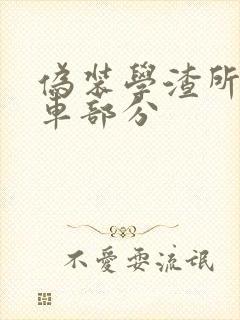 偽裝學渣所
車部分
不愛耍流氓